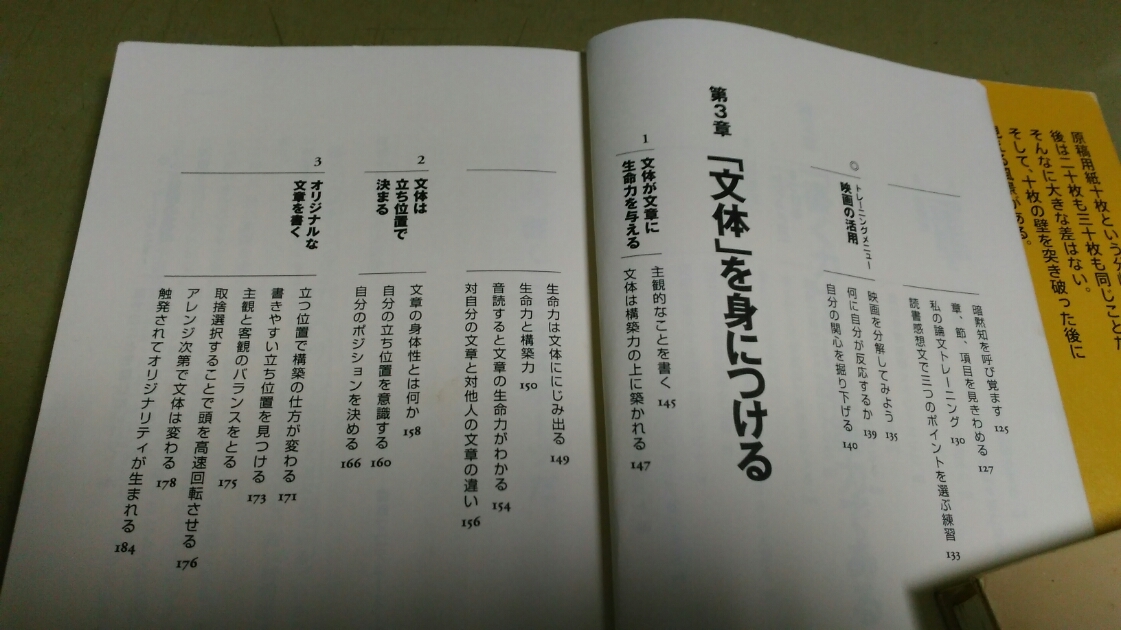 原稿用紙十枚という分
後は二十枚も三十枚も同じことだ
そんなに大きな差はない。
そして、十枚の壁を突き破った後に
暗黙知を呼び覚ます 125
章、節、項目を見きわめる 127
私の論文トレーニング 130
読書感想文で三つのポイントを選ぶ練習 133
◎ トレーニングメニュー
映画の活用
映画を分解してみよう 135
何に自分が反応するか 139
自分の関心を掘り下げる 140
第3章 「文体」を身につける
1 文体が文章に
生命力を与える
主観的なことを書く 145
文体は構築力の上に築かれる 147
生命力は文体ににじみ出る 149
生命力と構築力 150
音読すると文章の生命力がわかる 154
対自分の文章と対他人の文章の違い 156
2 文体は
立ち位置で
決まる
文章の身体性とは何か 158
自分の立ち位置を意識する 160
自分のポジションを決める 166
3 オリジナルな
文章を書く
立つ位置で構築の仕方が変わる 171
書きやすい立ち位置を見つける 173
主観と客観のバランスをとる 175
取捨選択することで頭を高速回転させる 176
アレンジ次第で文体は変わる 178
触発されてオリジナリティが生まれる 184